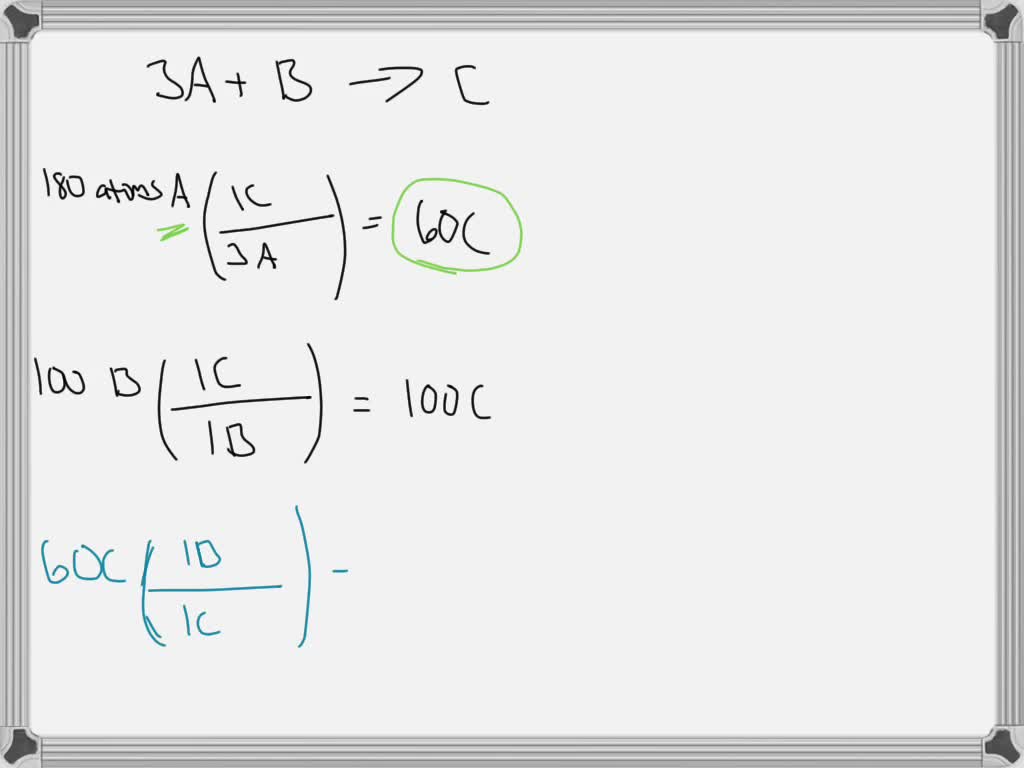 3A + B → C
180 atoms A (1C / 3A) = 60C
100 B (1C / 1B) = 100C
60C (1B / 1C) -